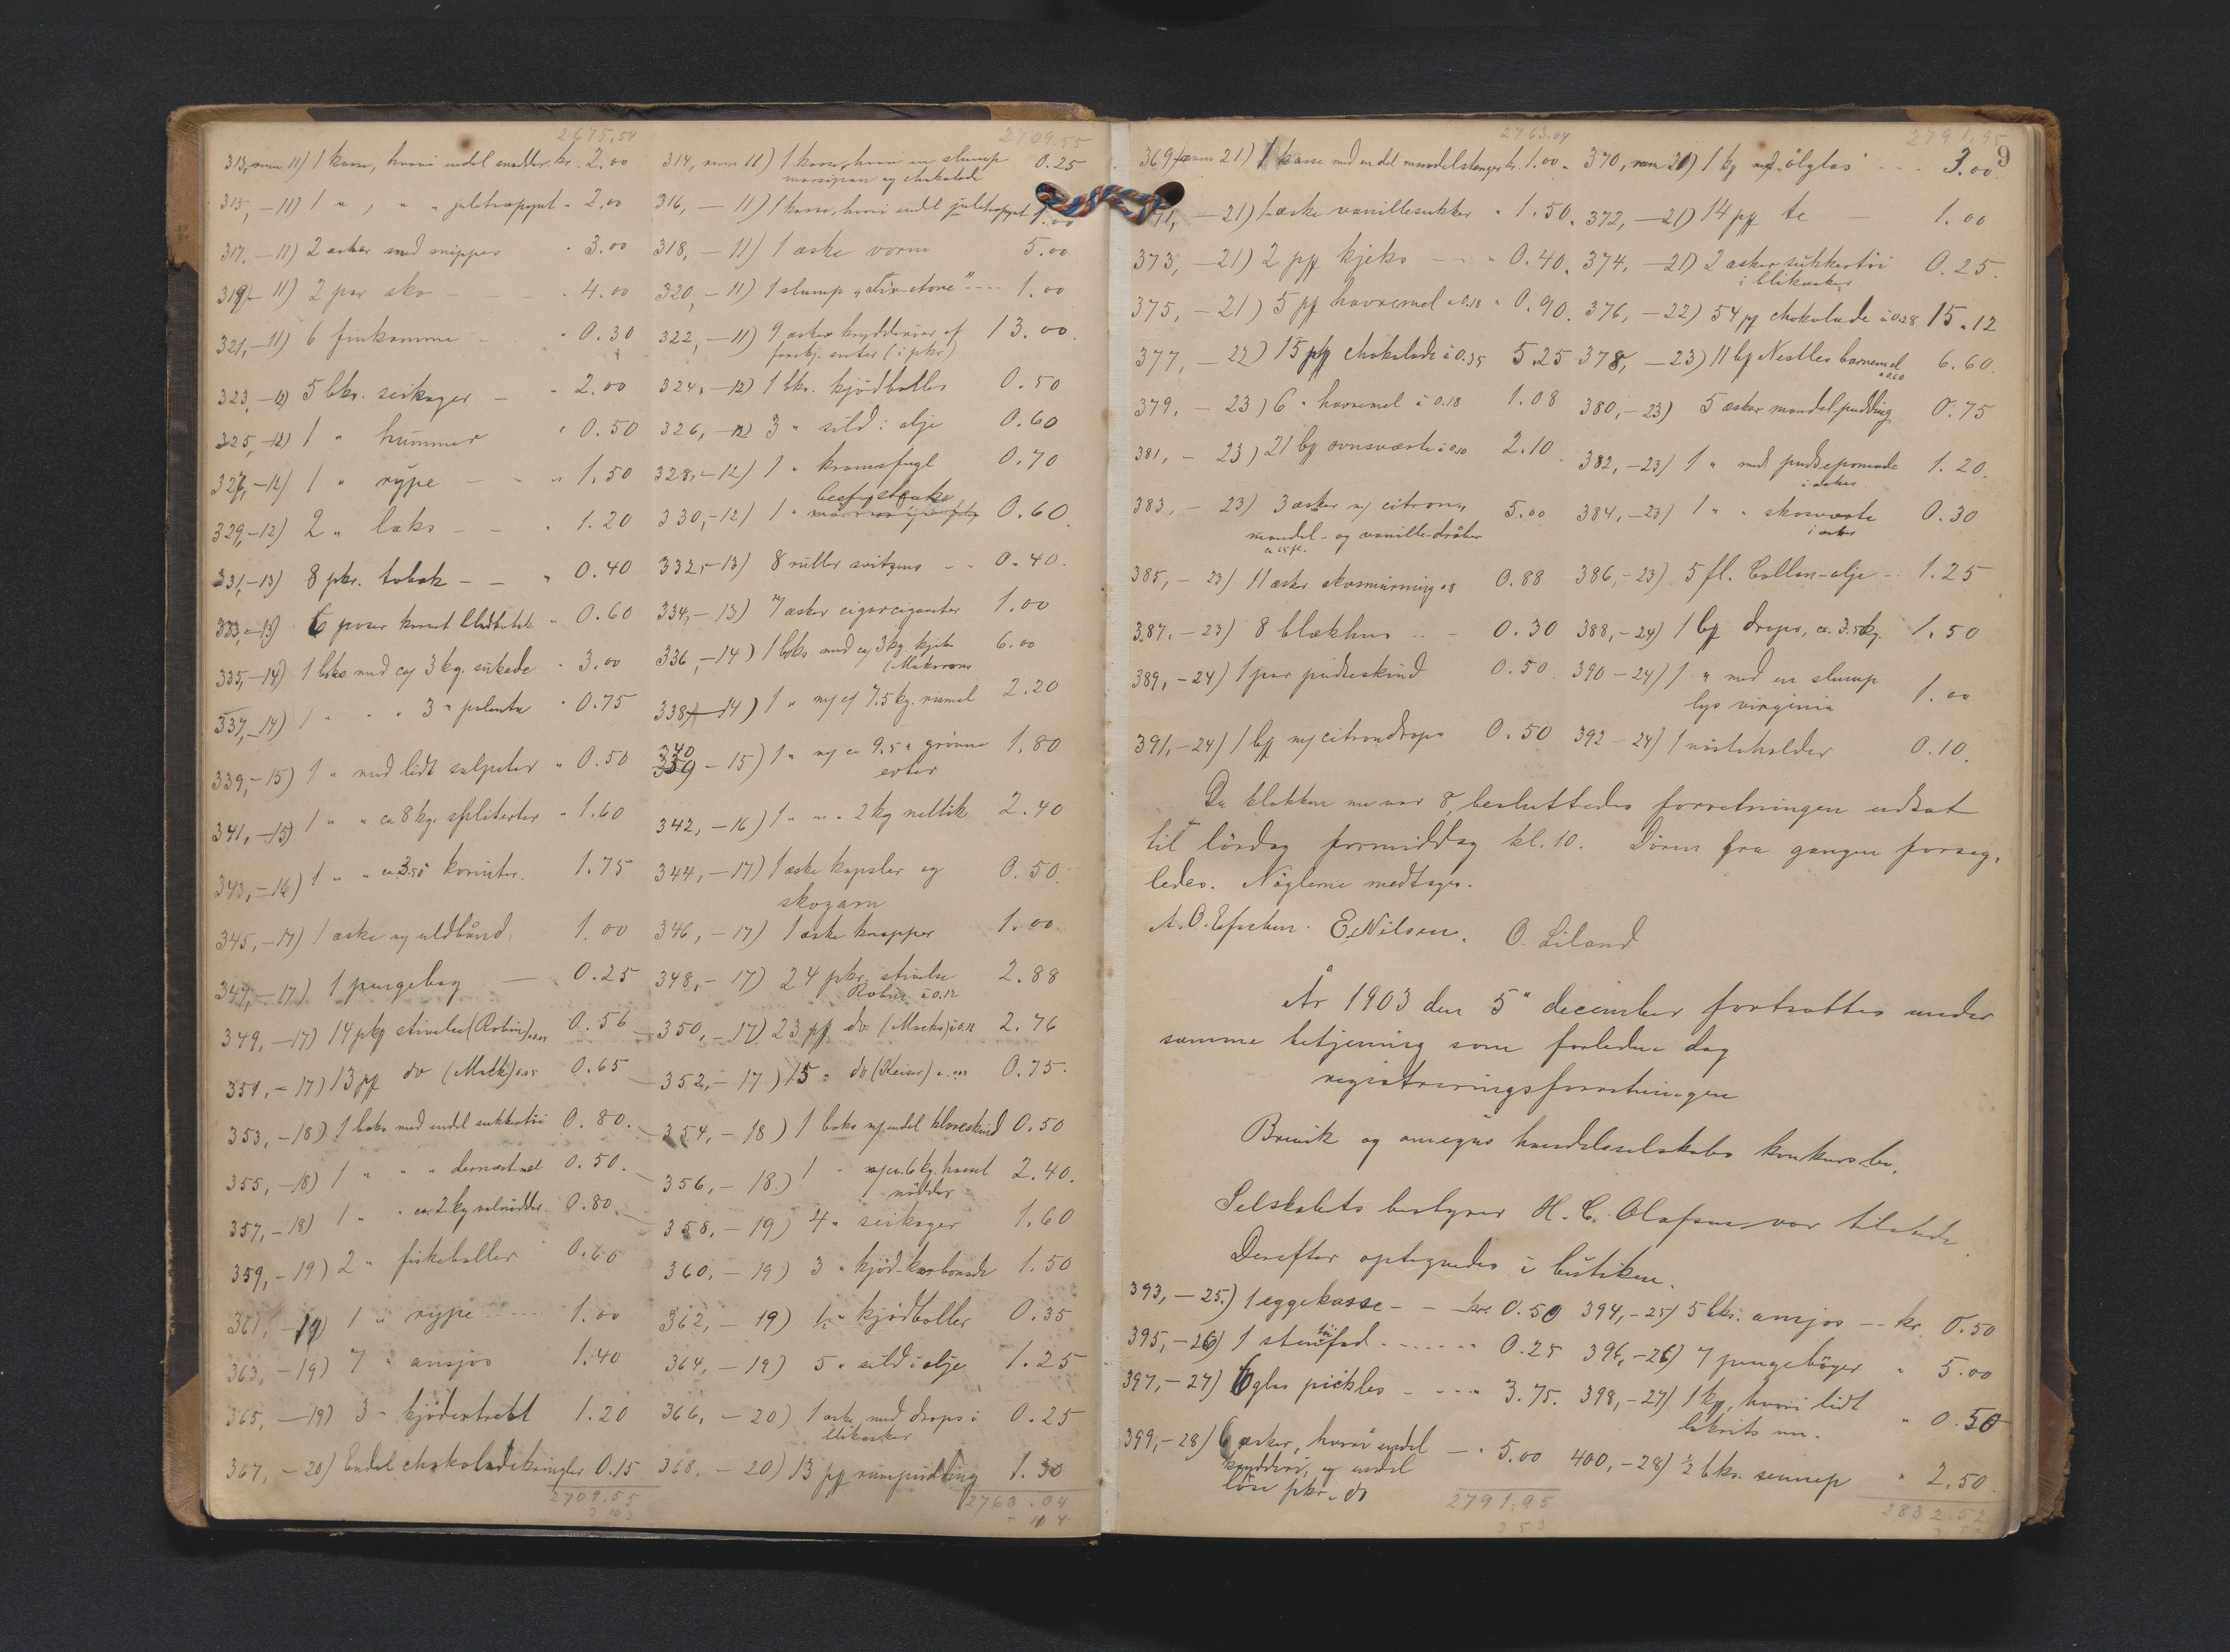 2675.54
313, rum 11) 1 kasse, hvori endel snadder kr. 2.00
315, -11) 1 " , " " juletræpynt " 2.00
317, -11) 2 æsker med snipper " 3.00
319, -11) 2 par sko - - - " 4.00
321, -11) 6 finkamme - " 0.30
323, -12) 5 bks. seikager - " 2.00
325, -12) 1 " hummer " 0.50
327, -12) 1 " rype - - " 1.50
329, -12) 2 " laks - - " 1.20
331, -13) 8 pkr. tobak - - " 0.40
333, -13) 6 poser karvet bladtobak " 0.60
335, -14) 1 boks med ca 3 kg. sukade " 3.00
337, -14) 1 " " " 3 " polenta " 0.75
339, -15) 1 " med lidt salpeter " 0.50
341, -15) 1 " " ca 8 kg. spliterter " 1.60
343, -16) 1 " " ca 3.50 korinter. 1.75
345, -17) 1 æske m/ uldbånd 1.00
347, -17) 1 pengebog - 0.25
349, -17) 14 pkg stivelse (Robin) a 0.04 0.56
351, -17) 13 pk do (Mack) a 0.05 0.65
353, -18) 1 boks med endel sukkertöi 0.80.
355, -18) 1 " " " 0.50.
357, -18) 1 " " ca. 2 kg valnödder. 0.80
359, -19) 2 " fiskeboller 0.60
361, -19) 1 " rype 1.00
363, -19) 7 " ansjos 1.40
365, -19) 3 " kjödextrakt 1.20
367, -20) Endel chokoladekringler 0.15
2709.55
2709.55
314, rum 11) 1 kasse, hvori en slump 0.25
marsipan og chokolade
316, -11) 1 kasse, hvori endel juletræpynt 1.00
318, -11) 1 æske vorm 5.00
320, -11) 1 slump 1.00
322, -11) 9 æsker krydderier af 13.00.
forskj. sorter (i pkr)
324, -12) 1 bks. kjödboller 0.50
326, -12) 3 " sild i olje 0.60
328, -12) 1 " kramsfugl 0.70
330, -12) 1 " 0.60.
332, -13) 8 ruller svitzens - - 0.40.
334, -13) 7 æsker cigarcigaretter 1.00
336, -14) 1 boks. med ca 3 kg. kjeks 6.00
(Makroons
338, -14) 1 " m/ ca 7.5 kg. rismel 2.20
340 - 15) 1 " m/ ca 9.5 " grönne 1.80
erter
342, -16) 1 " " " 2 kg nellik 2.40
344, -17) 1 æske kapsler og 0.50.
skogarn
346, -17) 1 æske knapper 1.00.
348, -17) 24 pkr. stivelse 2.88
Robin à 0.12
350, -17) 23 pk do (Macks) à 0.12 2.76
352, -17) 15 " do (Keiser) a 0.05 0.75.
354, -18) 1 boks m/ endel kloreskind 0.50
356, -18) 1 " m/ ca. 6 kg. hassel 2.40.
nödder
358, -19) 4 " seikager 1.60
360, -19) 3 " kjöd-karbonade 1.50
362, -19) ½ " kjödboller 0.35
364, -19) 5 " sild i olje 1.25
366, -20) 1 æske med drops i 0.25
blikæsker
368, -20) 13 pk rumpudding 1.30
2763.04
2763.04
2791.95
9
369, rum 21) 1 kasse med en del mandelstænger kr. 1.00
370, rum 21) 1 kg m/ "ölglas" - - - 3.00
371, -21) 1 æske vanillesukker " 1.50. 372, -21) 14 pk te 1.00
373, -21) 2 pk kjeks - - " 0.40. 374, -21) 2 æsker sukkertöi 0.25.
i blikæsker
375, -21) 5 pk havremel a 0.18 " 0.90. 376, -22) 54 pk chokolade à 0.28 15.12
377, -22) 15 pk chokolade à 0.35 5.25 378, -23) 11 bx Nestles barnemel 6.60.
a 0.60
379, -23) 6 " havremel à 0.18 1.08 380, -23) 5 æsker mandelpudding 0.75
381, -23) 21 bx ovnsværte à 0.10 2.10. 382, -23) 1 " med pudsepomade 1.20.
i æsker.
383, -23) 3 æsker m/ citron, 5.00 384, -23) 1 " " skosværte 0.30
mandel- og vanilledråber i æsker
ca 65 fl.
385, -23) 11 æsker skosmurning a 8 0.88 386, -23) 5 fl. Collan-olje - 1.25
387, -23) 8 blækhus - - 0.30 388, -24) 1 bx drops, ca. 3.5 kg. 1.50
389, -24) 1 par pudseskind 0.50. 390 -24) 1 " med en slump
lys virginia 1.00
391, -24) 1 bx m/ citrondrops 0.50 392 -24) 1 nösteholder 0.10.
Da klokken nu var 8, besluttedes forretningen udsat
til lördag formiddag kl. 10. Dören fra gangen forseg-
ledes. Nöglerne medtoges.
E. Nilsen. O. Liland
År 1903 den 5" december fortsattes under
samme betjening som forledne dag
registreringsforretningen
Brevik og omegns handelsselskabs konkursbo.
Selskabets bestyrer H. C. Olafsen var tilstede.
Derefter optegnedes i butiken.
393, -25.) 1 eggekasse - - kr. 0.50 394, -25) 5 bks. ansjos - - kr. 0.50
395, -26) 1 stentöifad - - - - " 0.25 396, -26) 7 pengebøger " 5.00
397, -27) 6 glas pickles - - - " 3.75. 398, -27) 1 kp, hvori lidt
lakrits mm. " 0.50
399, -28) 6 æsker, hvori endel - " 5.00 400, -28) ½ bks. sennep " 2.50.
krydderi, og endel
löse pkr. do
2791.95
2832.52